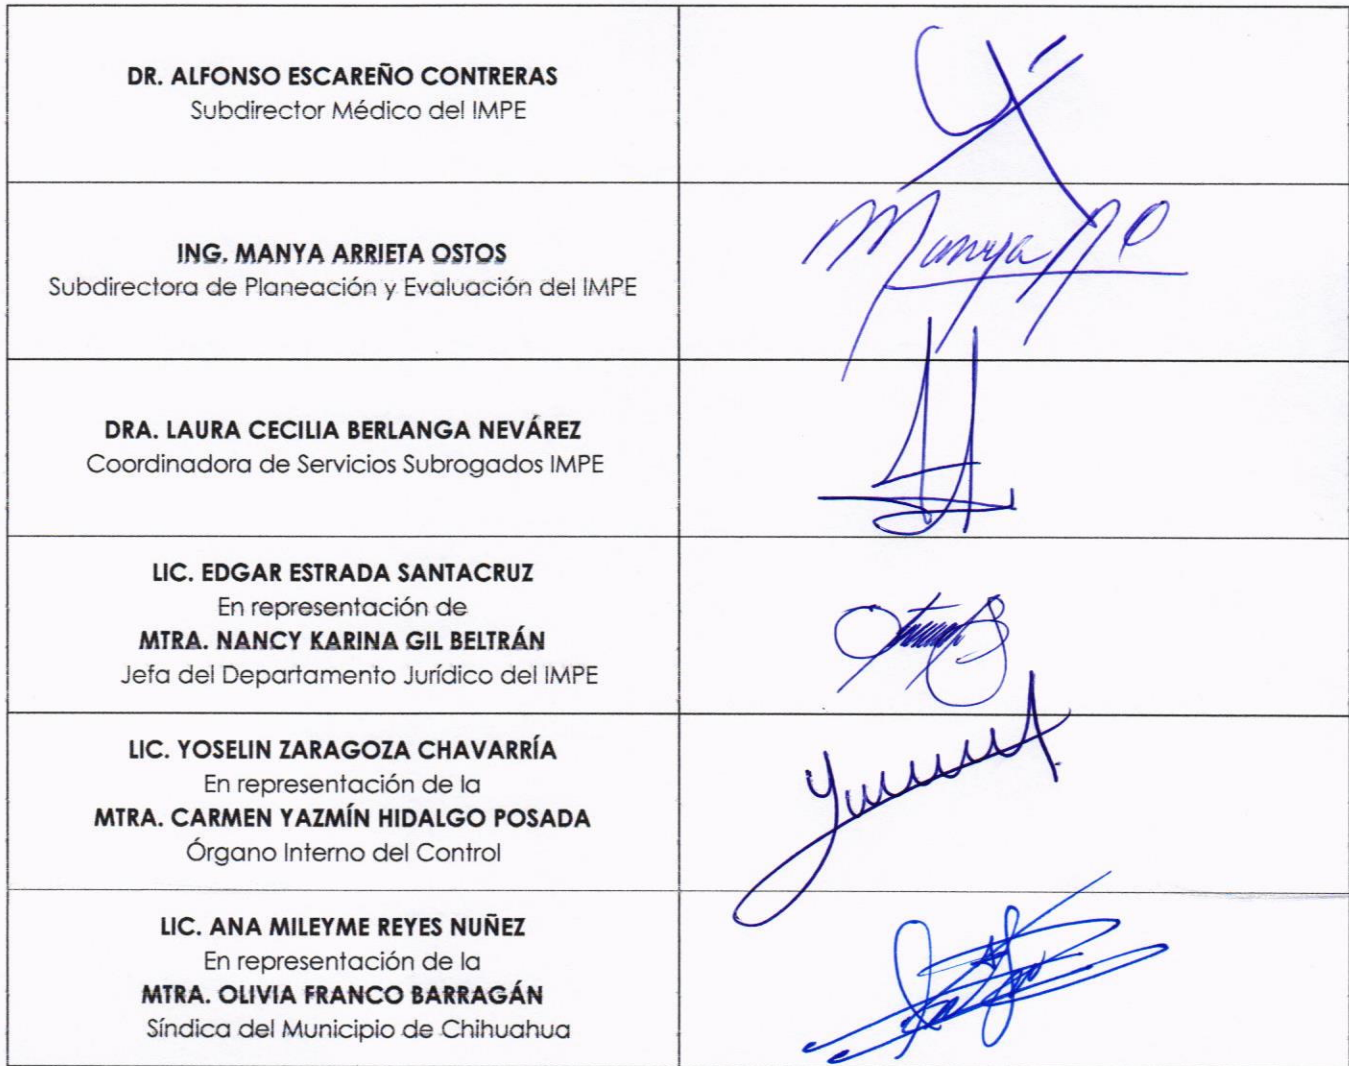 DR. ALFONSO ESCAREÑO CONTRERAS
Subdirector Médico del IMPE
ING. MANYA ARRIETA OSTOS
Subdirectora de Planeación y Evaluación del IMPE
Manya
DRA. LAURA CECILIA BERLANGA NEVÁREZ
Coordinadora de Servicios Subrogados IMPE
LIC. EDGAR ESTRADA SANTACRUZ
En representación de
MTRA. NANCY KARINA GIL BELTRÁN
Jefa del Departamento Jurídico del IMPE
LIC. YOSELIN ZARAGOZA CHAVARRÍA
En representación de la
MTRA. CARMEN YAZMÍN HIDALGO POSADA
Órgano Interno del Control
LIC. ANA MILEYME REYES NUÑEZ
En representación de la
MTRA. OLIVIA FRANCO BARRAGÁN
Síndica del Municipio de Chihuahua